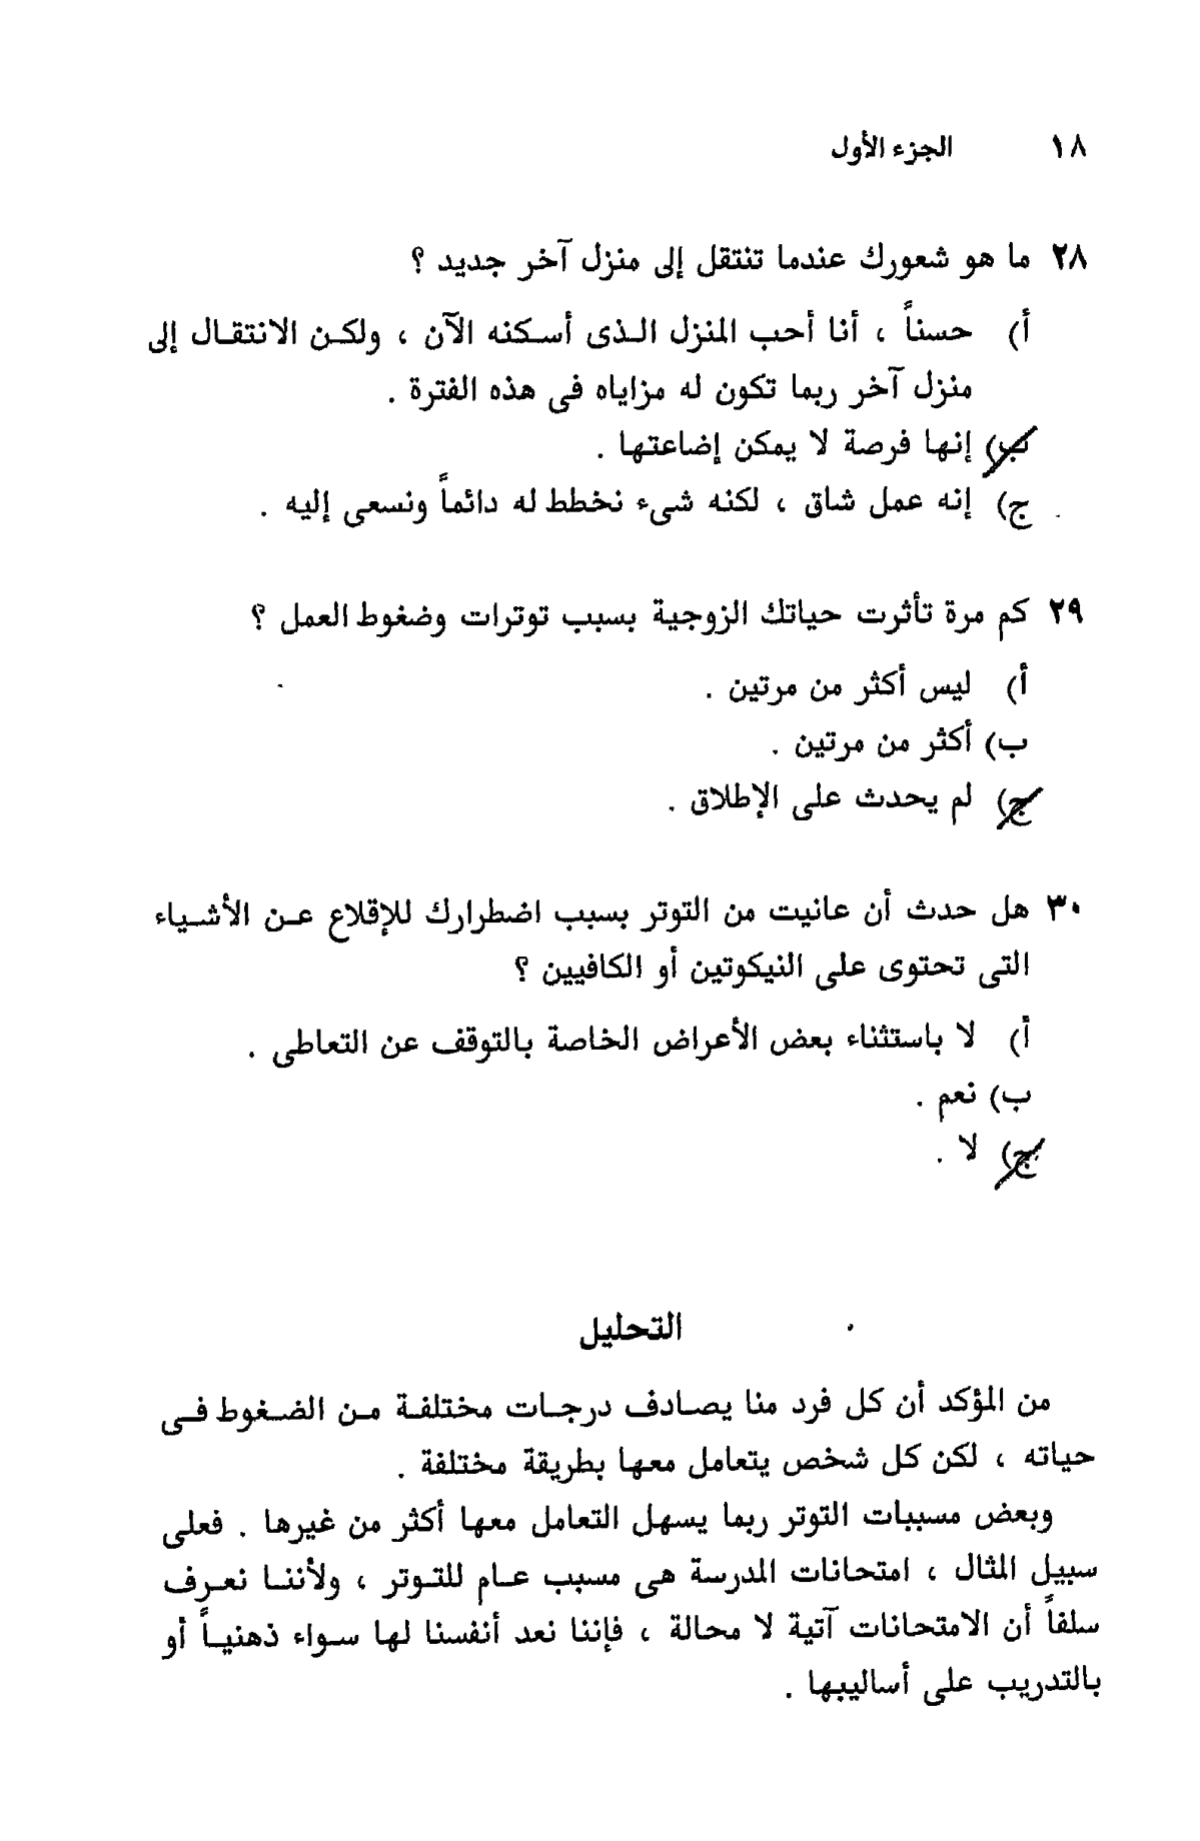 ١٨ الجزء الأول
٢٨ ما هو شعورك عندما تنتقل إلى منزل آخر جديد ؟
أ) حسناً ، أنا أحب المنزل الذى أسكنه الآن ، ولكن الانتقال إلى
منزل آخر ربما تكون له مزاياه فى هذه الفترة .
ب) إنها فرصة لا يمكن إضاعتها .
ج) إنه عمل شاق ، لكنه شىء نخطط له دائماً ونسعى إليه .
٢٩ كم مرة تأثرت حياتك الزوجية بسبب توترات وضغوط العمل ؟
أ) ليس أكثر من مرتين .
ب) أكثر من مرتين .
ج) لم يحدث على الإطلاق .
٣٠ هل حدث أن عانيت من التوتر بسبب اضطرارك للإقلاع عن الأشياء
التى تحتوى على النيكوتين أو الكافيين ؟
أ) لا باستثناء بعض الأعراض الخاصة بالتوقف عن التعاطى .
ب) نعم .
ج) لا .
التحليل
من المؤكد أن كل فرد منا يصادف درجات مختلفة من الضغوط فى
حياته ، لكن كل شخص يتعامل معها بطريقة مختلفة .
وبعض مسببات التوتر ربما يسهل التعامل معها أكثر من غيرها . فعلى
سبيل المثال ، امتحانات المدرسة هى مسبب عام للتوتر ، ولأننا نعرف
سلفاً أن الامتحانات آتية لا محالة ، فإننا نعد أنفسنا لها سواء ذهنياً أو
بالتدريب على أساليبها .